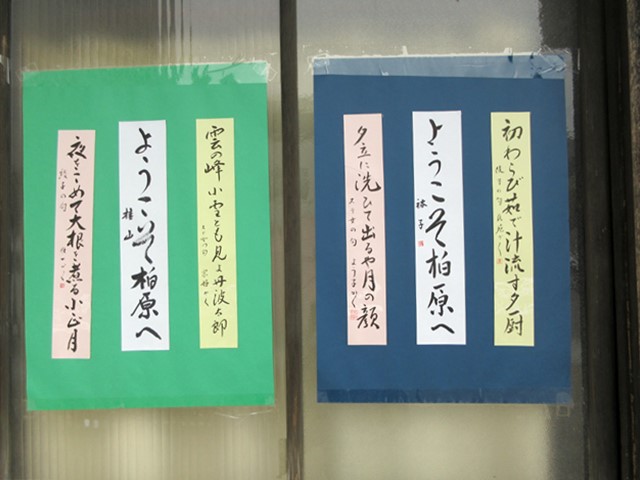 初わらび茹で汁流す夕厨
ようこそ柏原へ
夕立に洗ひて出るや月の顔
ステ女の句 ようこかく
雲の峰小雲とも見よ丹波太郎
ようこそ柏原へ
桂山
夜をこめて大根を煮る小正月